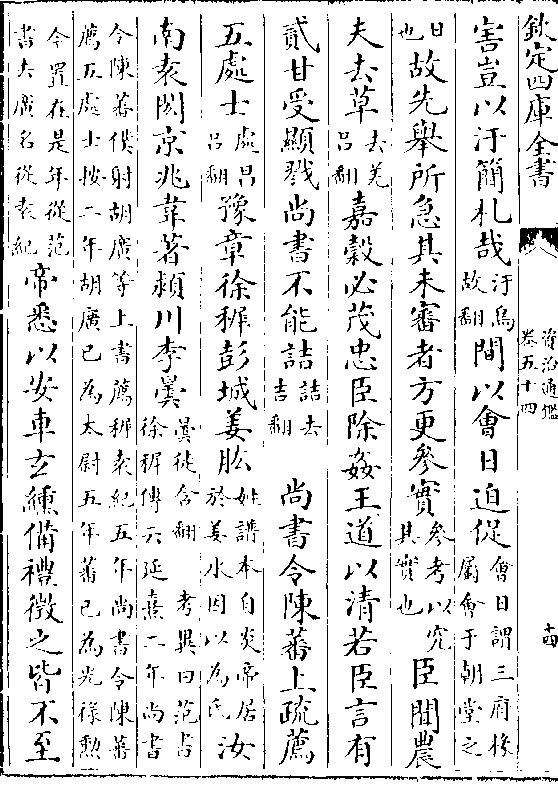 欽定四庫全書 資治通鑑 卷五十四 十四
害豈以汙簡札哉汙烏故翻間以會日迫促會日謂三府掾屬會于朝堂之
日也故先舉所急其未審者方更參實參考以究其實也臣聞農
夫去草去羌吕翻嘉穀必茂忠臣除姦王道以清若臣言有
貳甘受顯戮尚書不能詰詰去吉翻 尚書令陳蕃上疏薦
五處士處昌吕翻豫章徐稺彭城姜肱姓譜本自炎帝居於姜水因以為氏汝
南袁閎京兆韋著潁川李曇曇徒含翻 考異曰范書徐稺傳云延熹二年尚書
令陳蕃僕射胡廣等上書薦稺袁紀五年尚書令陳蕃薦五處士按二年胡廣已為太尉五年蕃已為光禄勲
今置在是年從范書去廣名從袁紀帝悉以安車玄纁備禮徵之皆不至